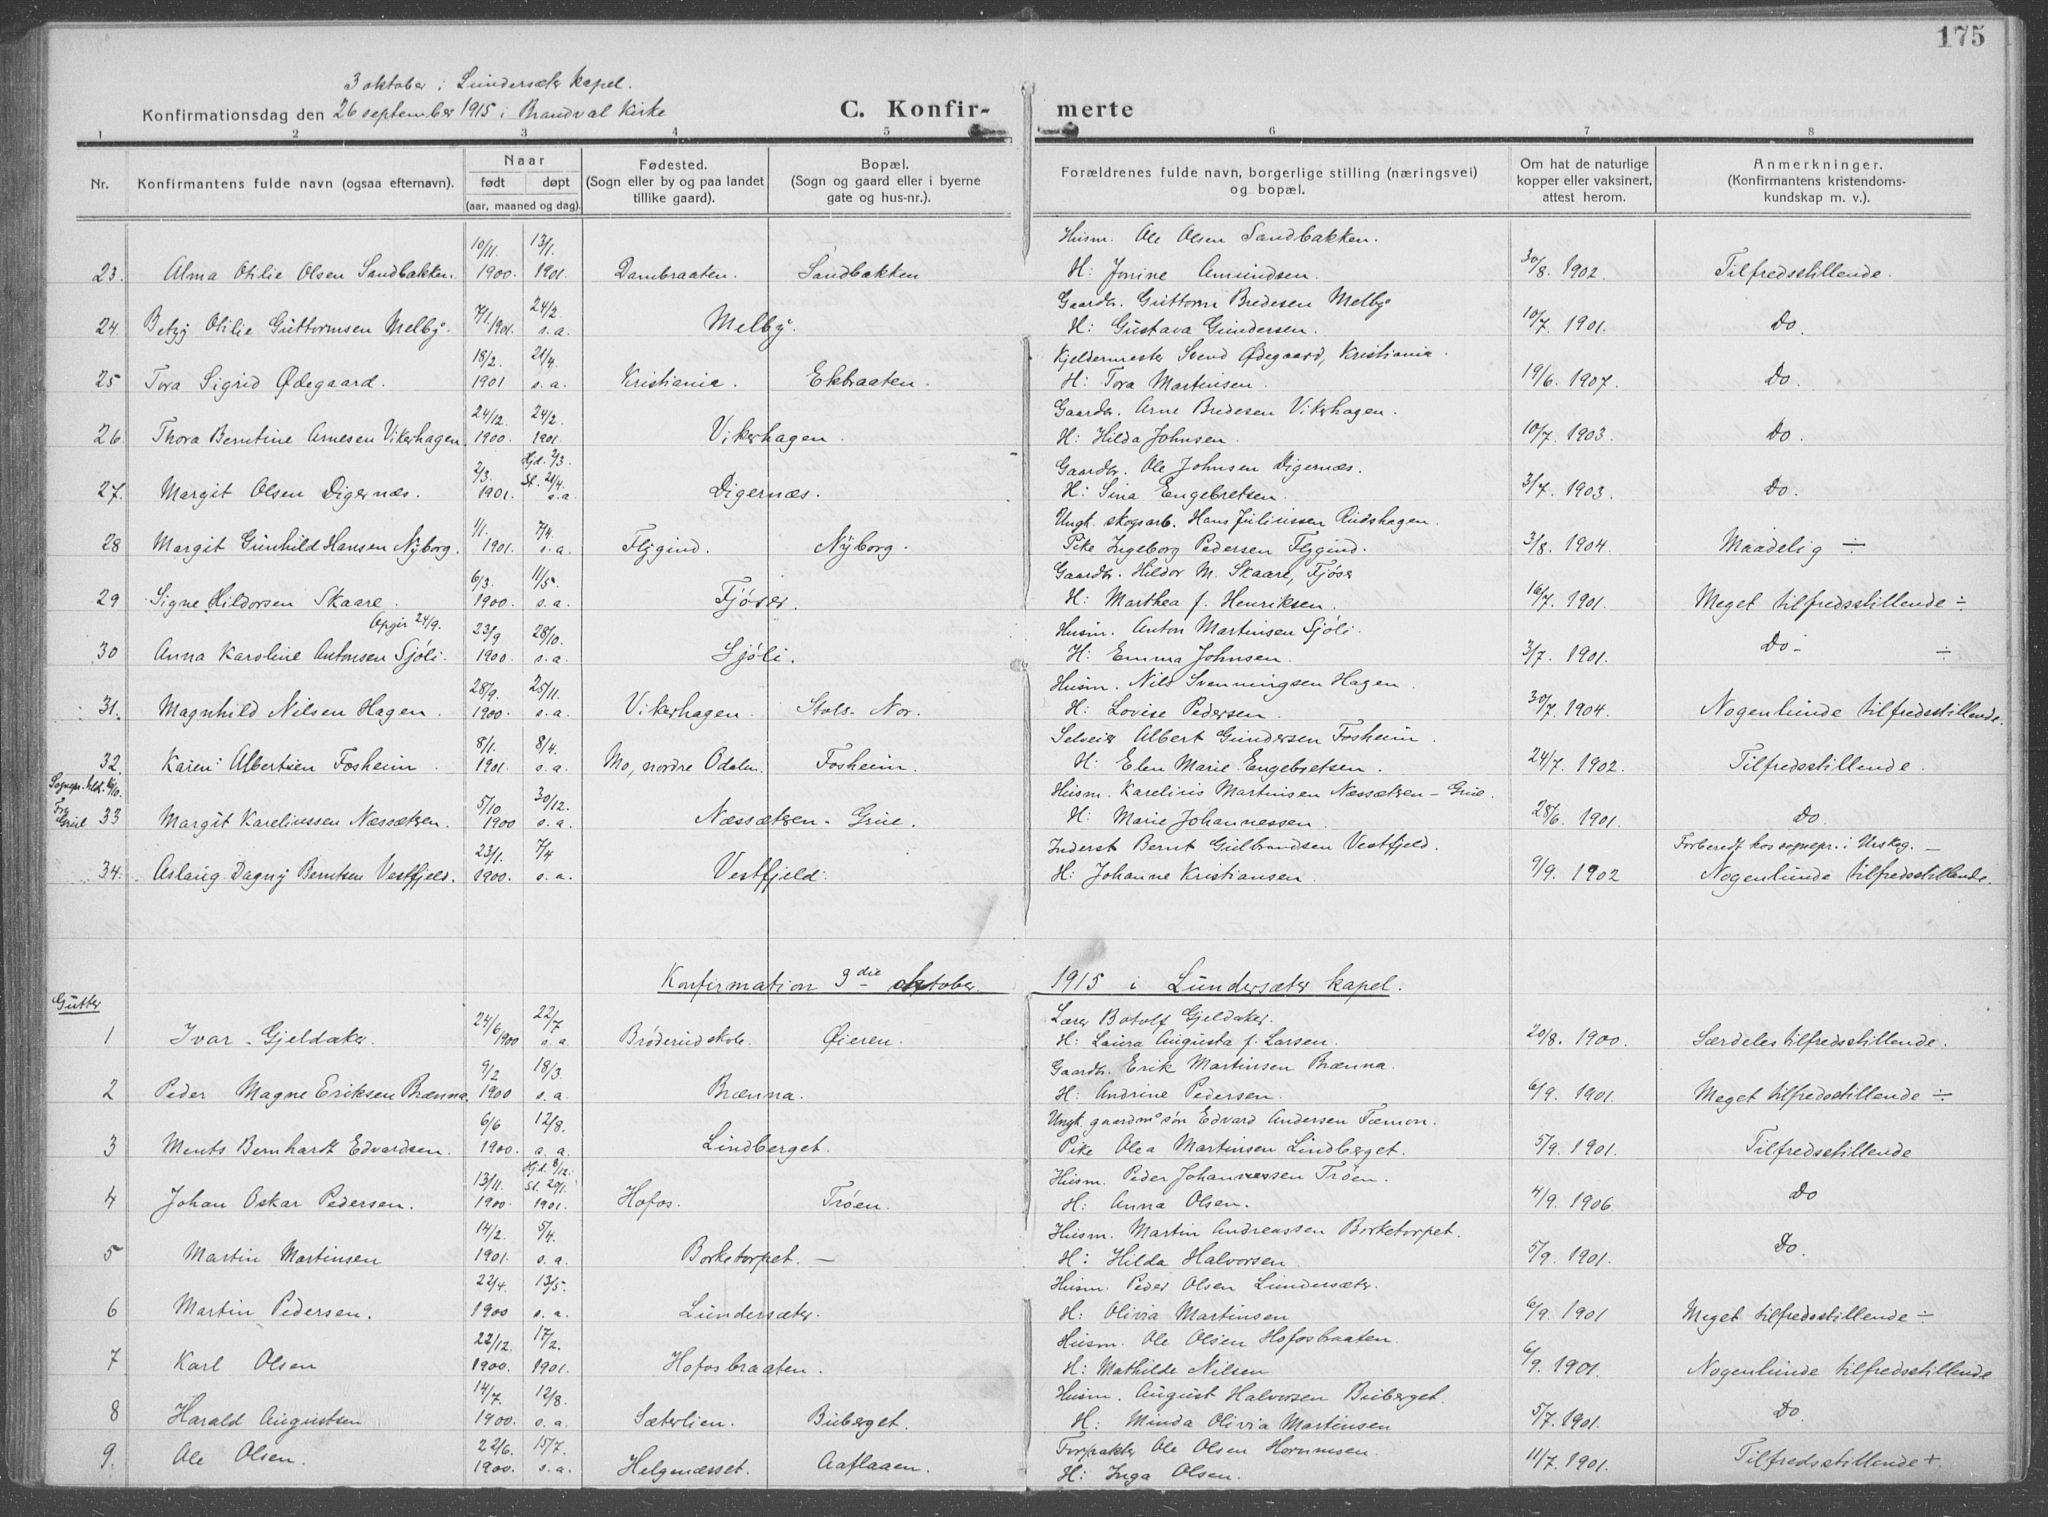 175
3 oktober i Lundersæter kapel.
Konfirmationsdag den 26 september 1915 i Brandval Kirke
C. Konfirmerte
1 2 3 4 5 6 7 8
Nr. | Konfirmantens fulde navn (ogsaa efternavn). | Naar født døpt (aar, maaned og dag). | Fødested. (Sogn eller by og paa landet tillike gaard). | Bopæl. (Sogn og gaard eller i byerne gate og hus-nr.). | Forældrenes fulde navn, borgerlige stilling (næringsvei) og bopæl. | Om hat de naturlige kopper eller vaksinert, attest herom. | Anmerkninger. (Konfirmantens kristendoms-kundskap m. v.).
10/11. 13/1. Husm. Ole Olsen Sandbakken.
23. Alma Otilie Olsen Sandbakken. 1900. 1901. Dambraaten. Sandbakken H: Jonine Amundsen. 30/8. 1902. Tilfredsstillende.
7/1. 24/2. Gaardbr. Guttorm Bredesen Melby
24. Betzy Otilie Guttormsen Melby. 1901. s.a. Melby. H: Gustava Gundersen. 10/7. 1901. Do.
18/2. 21/4. Kjeldermester Svend Ødegaard, Kristiania.
25 Tora Sigrid Ødegaard. 1901 s.a. Kristiania. Ekbraaten. H: Tora Martinsen. 19/6. 1907. Do.
24/12. 24/2. Gaardbr. Arne Bredesen Vikerhagen.
26. Thora Berntine Arnesen Vikerhagen 1900. 1901. Vikerhagen. H: Hilda Johnsen. 10/7. 1903. Do.
2/3. Hjd. 2/3. St. 21/4. Gaardbr. Ole Johnsen Digernæs.
27. Margit Olsen Digernæs. 1901. s.a. Digernæs. H: Sina Engebretsen. 3/7. 1903. Do.
1/1. 7/4. Ungk. skogsarb. Hans Juliussen Rudshagen.
28 Margit Gunhild Hansen Nyborg. 1901. s.a. Flygind. Nyborg. Pike Ingeborg Pedersen Flygind. 3/8. 1904. Maadelig ÷
6/3. 11/5. Gaardbr. Hildor M. Skaare, Tjöser
29 Signe Hildorsen Skaare. 1900. s.a. Tjöser. H: Marthea f. Henriksen. 16/7. 1901. Meget tilfredsstillende ÷
Opgir 24/9. 23/9 28/10. Husm. Anton Martinsen Sjöli.
30 Anna Karoline Antonsen Sjöli. 1900. s.a. Sjöli. H: Emma Johnsen. 3/7. 1901. Do - ÷
28/9. 25/11. Husm. Nils Svenningsen Hagen.
31. Magnhild Nilsen Hagen. 1900. s.a. Vikerhagen. Stols-Nor. H: Lovise Pedersen. 30/7. 1904. Nogenlunde tilfredsstillende.
8/1. 8/4. Selveier Albert Gundersen Fosheim.
32. Karen Albertsen Fosheim. 1901. s.a. Mo, nordre Odalen. Fosheim. H: Elen Marie Engebretsen. 24/7. 1902. Tilfredsstillende.
5/10 30/12. Husm. Karelius Martinsen Næssætren - Grue.
Fra Grue 33 Margit Kareliussen Næssætren. 1900 s.a. Næssætren - Grue. H: Marie Johannessen. 28/6. 1901. Do.
23/1. 7/4 Inderst Bernt Gulbrandsen Vestfjeld. Forberedt hos sognepr. i Urskog. —
34. Aslaug Dagny Berntsen Vestfjeld. 1900. s.a. Vestfjeld. H: Johanne Kristiansen. 9/9. 1902 Nogenlunde tilfredsstillende.
Konfirmation 3die oktober 1915 i Lundersæter kapel.
Gutter
24/6 22/7 Lærer Botolf Gjeldaker.
1 Ivar Gjeldaker. 1900 s.a. Bröderud skole. Öieren. H: Laura Augusta f. Larsen. 20/8. 1900. Særdeles tilfredsstillende.
9/2 18/3. Gaardbr. Erik Martinsen Brænna.
2 Peder Magne Eriksen Brænna. 1900 s.a. Brænna. H: Andrine Pedersen. 6/9. 1901. Meget tilfredsstillende ÷
6/6 12/8. Ungk. gaardm. sön Edvard Andersen Fæmon.
3 Ments Bernhardt Edvardsen. 1900. s.a. Lindberget. Pike Olea Martinsen Lindberget. 5/9. 1901. Tilfredsstillende
13/11. Hjd. 8/12. St. 20/1. Husm. Peder Johannessen Tröen.
4 Johan Oskar Pedersen. 1900. 1901. Hofos. Tröen. H: Anna Olsen. 4/9. 1906. Do
14/2. 5/4. Husm. Martin Andreassen Borketorpet.
5 Martin Martinsen 1901. s.a. Borketorpet. — H: Hilda Halvorsen. 5/9. 1901. Do.
22/4. 13/5. Husm. Peder Olsen Lundersæter.
6 Martin Pedersen. 1900 s.a. Lundersæter. H: Olivia Martinsen 6/9. 1901 Meget tilfredsstillende ÷
22/12. 17/2. Husm. Ole Olsen Hofosbraaten.
7 Karl Olsen 1900. 1901. Hofosbraaten. H: Mathilde Nilsen 6/9. 1901. Nogenlunde tilfredsstillende
14/7. 12/8. Husm. August Halvorsen Buberget.
8 Harald Augustsen 1900. s.a. Sæterlien. Buberget. H: Minda Olivia Martinsen 5/7. 1901. Do.
22/6. 15/7. Forpakter Ole Olsen Hornmoen.
9. Ole Olsen. 1900. s.a. Helgenæsset. Aaflaaen. H: Inga Olsen. 11/7. 1901. Tilfredsstillende +.